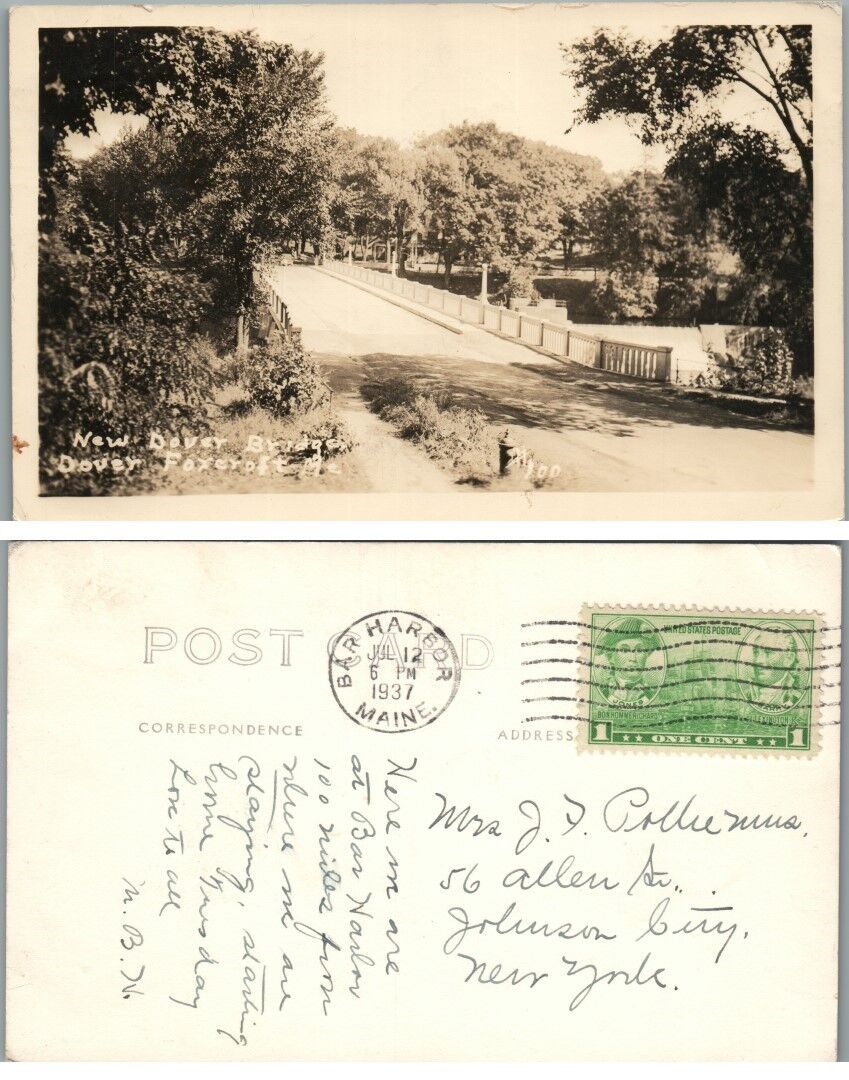 New Dover Bridge
Dover Foxcroft Me
100
POST CARD
BAR HARBOR
JUL 12
6 PM
1937
MAINE.
UNITED STATES POSTAGE
JONES
BARRY
BON HOMME RICHARD
LEXINGTON
1 ONE CENT 1
CORRESPONDENCE
ADDRESS
Here we are
at Bar Harbor
100 miles from
where we are
staying, starting
home Tuesday
Love to all
M. B. H.
Mrs J. F. Polhemus,
56 Allen St.
Johnson City,
New York.